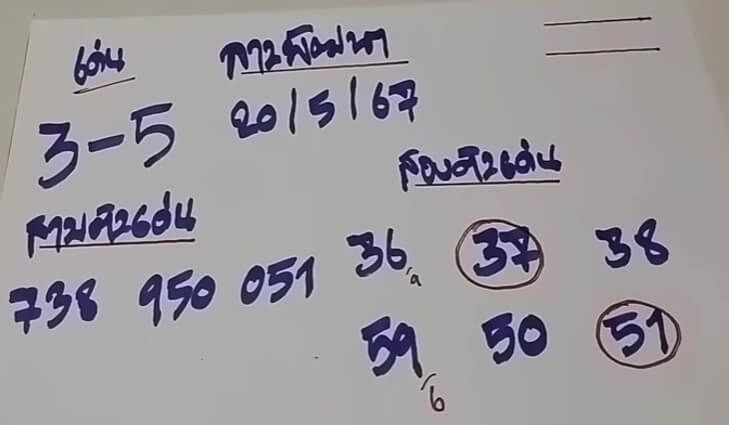 เด่น
ลาวพัฒนา
3-5
20/5/67
สองตัวเด่น
สามตัวเด่น
36 37 38
738 950 051
59 50 51